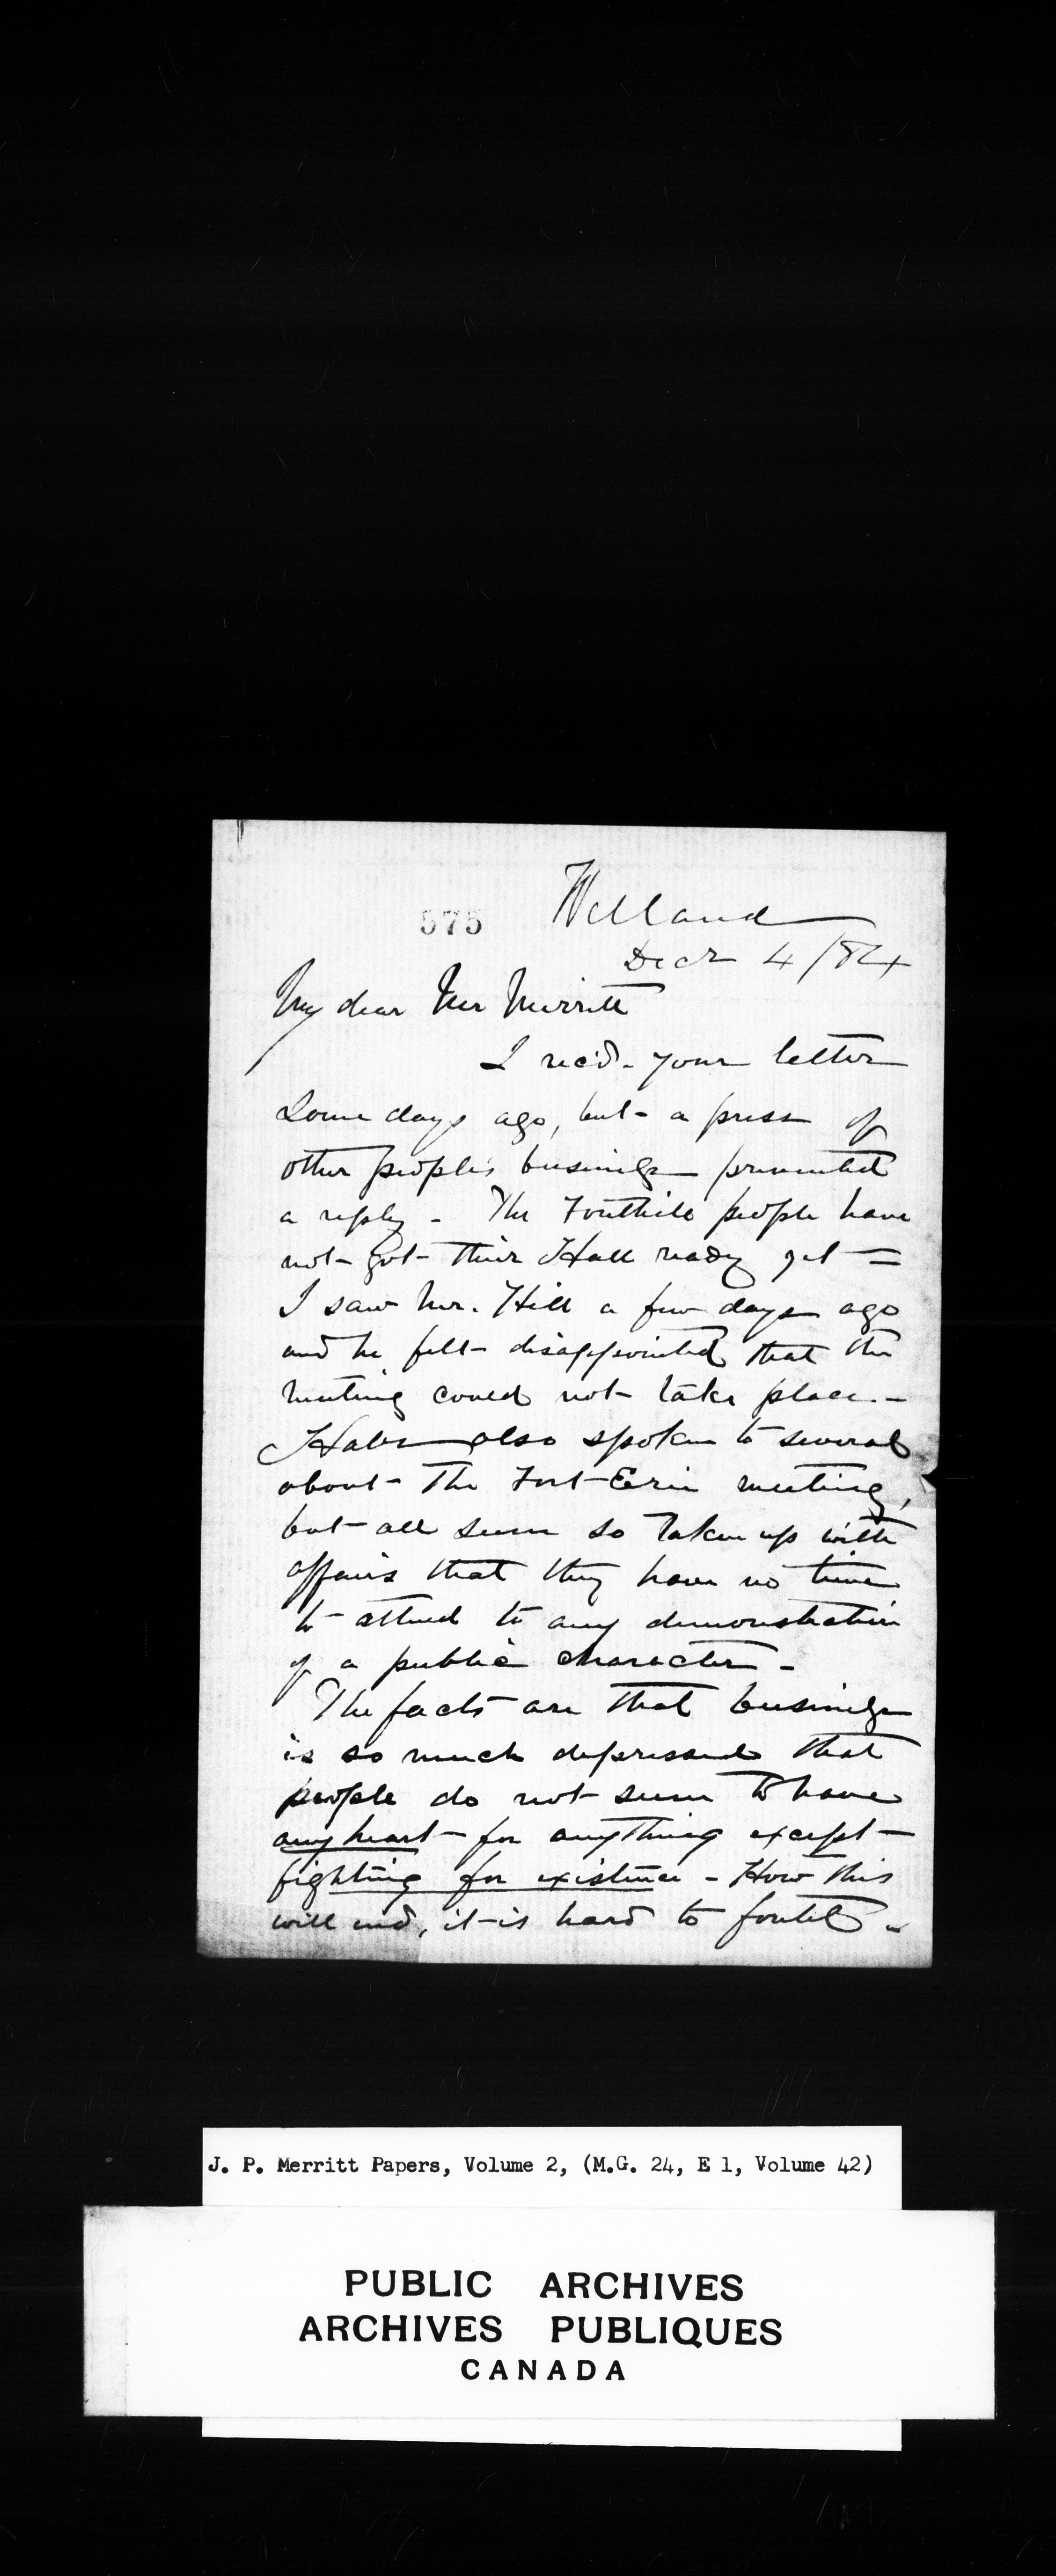 575
Welland
Decr 4/84
My dear Mr Merritt
I rec'd. your letter
some days ago, but a press of
other people's business prevented
a reply - The Fonthill people have
not got their Hall ready yet =
I saw Mr. Hill a few days ago
and he felt disappointed that the
meeting could not take place. -
Have also spoken to several
about the Fort Erie meeting,
but all seem so taken up with
affairs that they have no time
to attend to any demonstration
of a public character -
The facts are that business
is so much depressed that
people do not seem to have
any heart for anything except
fighting for existence - How this
will end, it is hard to foretell -
J. P. Merritt Papers, Volume 2, (M.G. 24, E 1, Volume 42)
PUBLIC ARCHIVES
ARCHIVES PUBLIQUES
CANADA